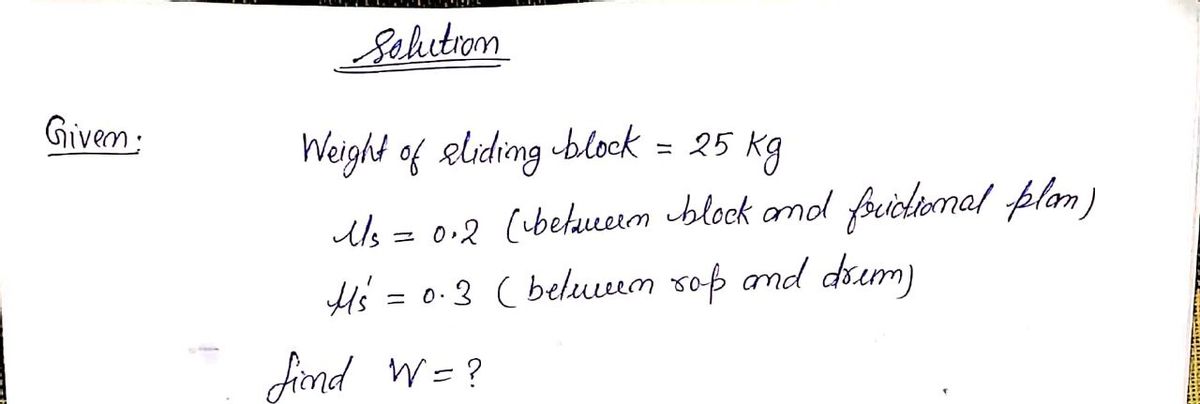 Solution
Given:
Weight of sliding block = 25 Kg
μs = 0.2 (between block and frictional plan)
μs' = 0.3 (between rop and drum)
find W = ?